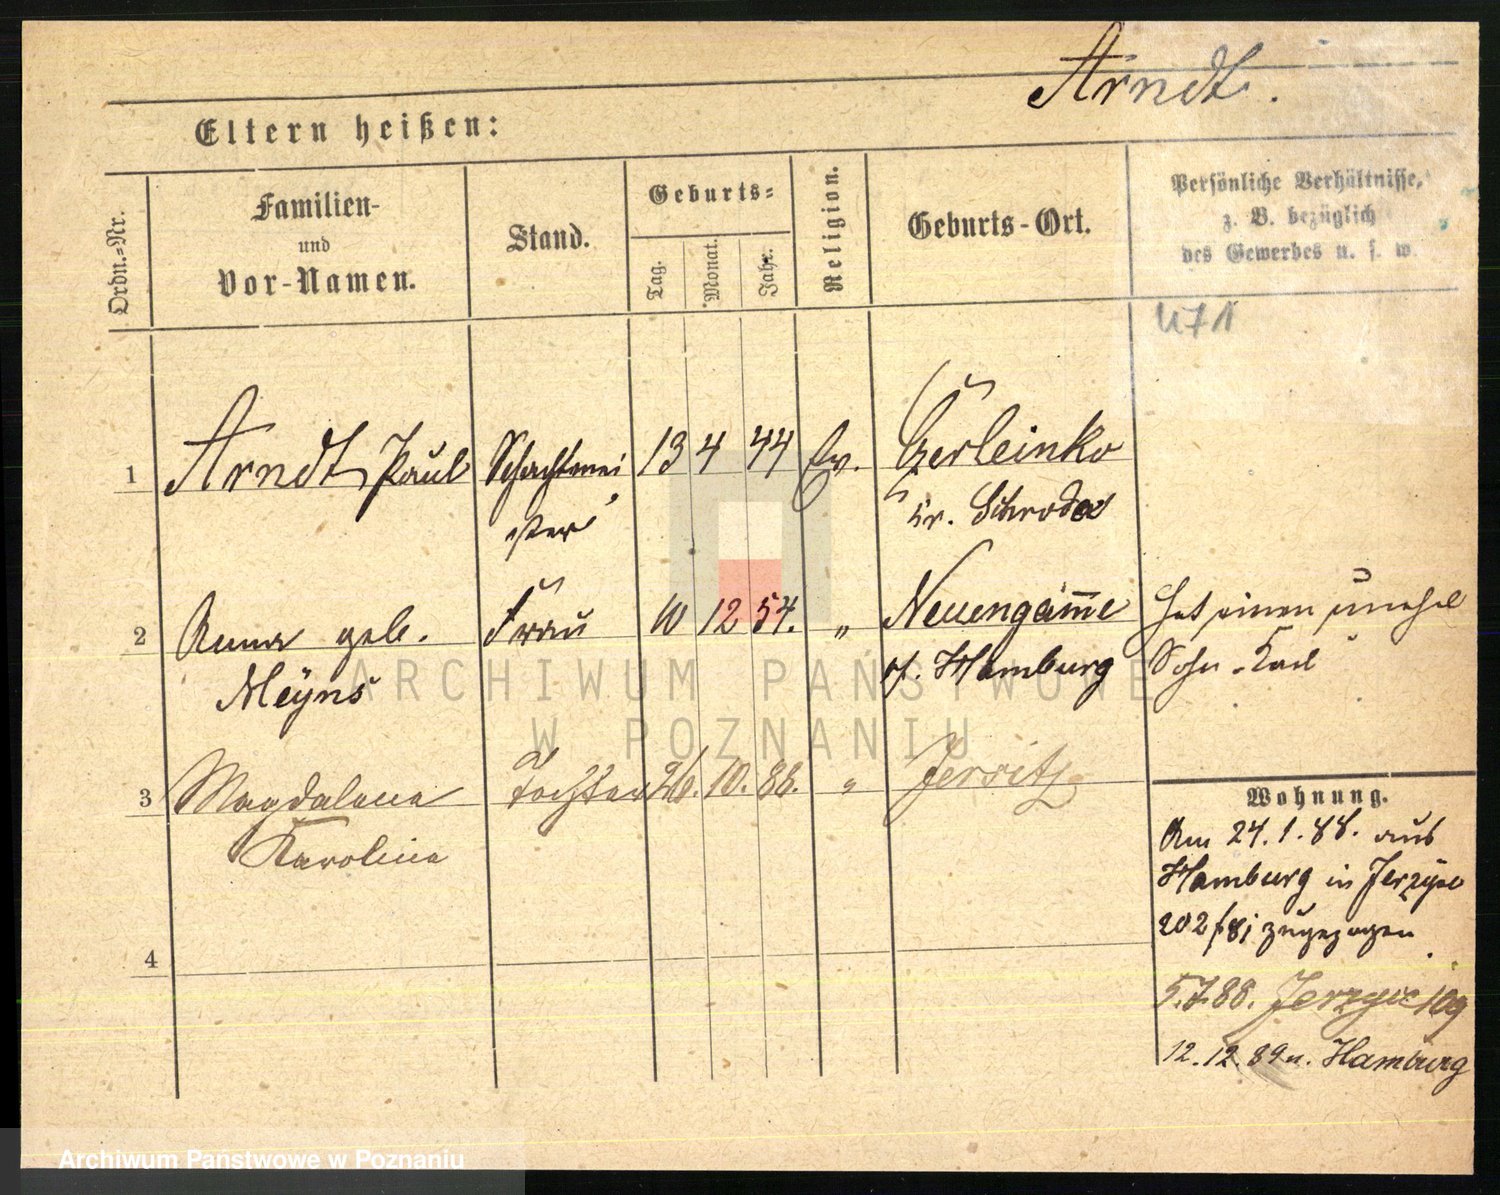 Arndt.
Eltern heißen:
Ordn.-Nr.
Familien-
und
Vor-Namen.
Stand.
Geburts-
Tag.
Monat.
Jahr.
Religion.
Geburts-Ort.
Persönliche Verhältnisse,
z. B. bezüglich
des Gewerbes u. s. w.
1 Arndt, Paul Schachtmei 13 4 44 Ev.
ster
2 Anna geb. Frau 10 12 54. " Neuengam̅e Hat einen unehel
Meÿns Hamburg Sohn Karl
3 Magdalena Tochter 26. 10. 88. " Jersitz
Karolina
4
Wohnung.
Am 24.1.88. aus
Hamburg in Jerzyce
202/81 zugezogen
5.7.88. Jerzyce 109
12.12.89 n. Hamburg
ARCHIWUM PAŃSTWOWE
W POZNANIU
Archiwum Państwowe w Poznaniu